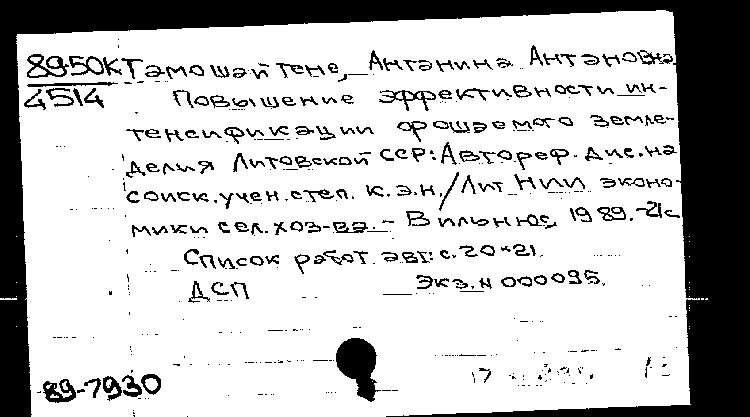 89-50К Тамошайтене, Антанина Антановна
4514 Повышение эффективности ин-
тенсификации орошаемого земле-
делия Литовской ССР: Автореф. дис. на
соиск. учен. степ. к.э.н. / Лит НИИ эконо-
мики сел. хоз-ва. - Вильнюс, 1989. - 21с
Список работ авт.: с. 20-21.
ДСП Экз. N 000095.
89-7930 17